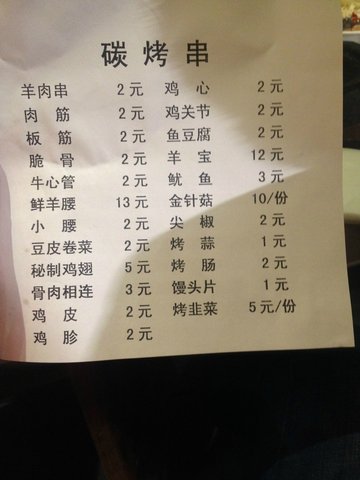 碳烤串
羊肉串 2元 鸡心 2元
肉筋 2元 鸡关节 2元
板筋 2元 鱼豆腐 2元
脆骨 2元 羊宝 12元
牛心管 2元 鱿鱼 3元
鲜羊腰 13元 金针菇 10/份
小腰 2元 尖椒 2元
豆皮卷菜 2元 烤蒜 1元
秘制鸡翅 5元 烤肠 2元
骨肉相连 3元 馒头片 1元
鸡皮 2元 烤韭菜 5元/份
鸡胗 2元